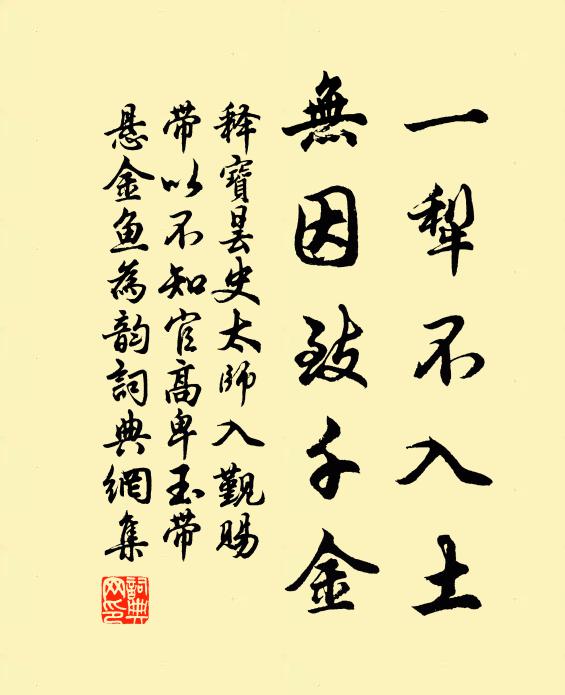 一犁不入土
無因致千金
释寶曇史太師入觐賜
帶以不知官高卑玉帶
悬金鱼為韵詞典網集
詞典網印